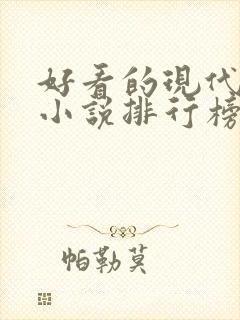 好看的現代
小說排行榜
帕勒莫